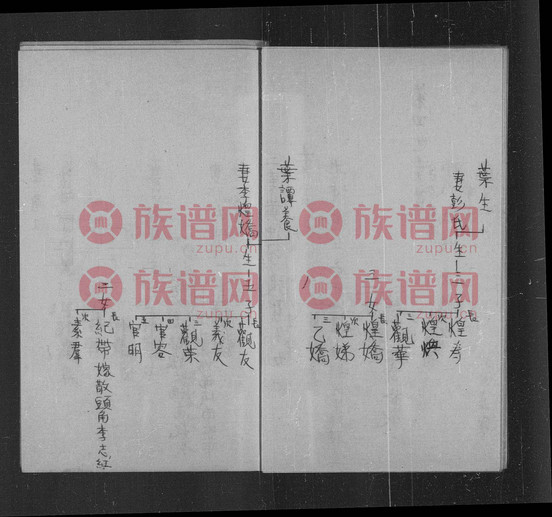 葉生
妻彭氏生三子
長 煌考
次 煌煥
三 觀華
三女
長 煌嬌
次 煌娣
三 乙嬌
葉譚養
妻李煌嬌生五子
長 觀友
次 義友
三 觀葉
四 官容
五 官明
二女
長 纪帶嫁散頭角李志紅
次 素群
族谱网
zupu.cn
族谱网
zupu.cn
族谱网
zupu.cn
族谱网
zupu.cn